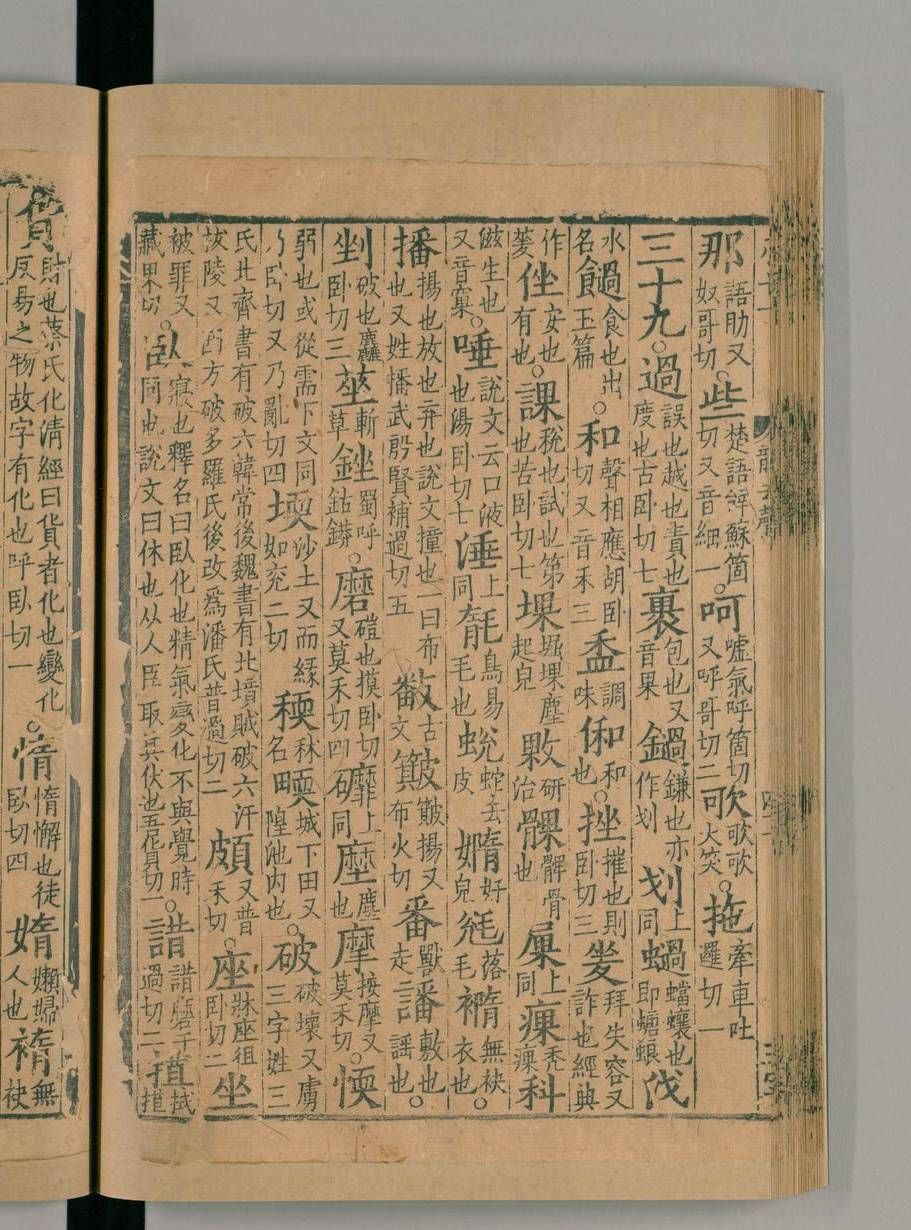 那語助又奴哥切○些楚語辤蘇箇切又音細一○呵噓氣呼箇切又呼哥切二歌歌歌大笑○拖牽車吐邏切一
三十九○過誤也越也責也度也古卧切七裹包也又音果鍋鎌也亦作划划上同蝸蟷蠰也即螗蜋㳀
水名䬤食也出玉篇○和聲相應胡卧切又音禾三盉調味俰和也○挫摧也則卧切三夎拜失容又詐也經典
作蓌㘸安也有也○課稅也試也第也苦卧切七堁堀堁塵起皃敤研治髁髀骨㞅上同㾃禿㾃科
滋生也又音窠○唾說文云口液也湯卧切七涶上同毻鳥易毛也蛻蛇去皮嫷好皃毤落毛䙐無袂衣也○
播揚也放也弃也說文撞也一曰布也又姓播武殷賢補過切五𢿥古文簸簸揚又布火切番獸走譒敷也謡也○
剉破也麤卧切三莝斬草銼蜀呼鈷䥈○磨磑也摸卧切又莫禾切四礳上同塺塵也摩按摩又莫禾切○愞
弱也或從需下文同乃卧切又乃亂切四堧沙土又而緣如兗二切稬秫名㬉城下田又隍池內也○破破壞又虜三字姓三
氏北齊書有破六韓常後魏書有北境賊破六汗拔陵又西方破多羅氏後改爲潘氏普過切二頗又普禾切○座牀座徂卧切二坐
被罪又藏果切○臥寢也釋名曰臥化也精氣變化不與覺時同也說文曰休也从人臣取其伏也五貨切一○𧩶
貨財也蔡氏化清經曰貨者化也變化反易之物故字有化也呼臥切一○惰惰懈也徒臥切四媠嬾婦人也䙐無袂